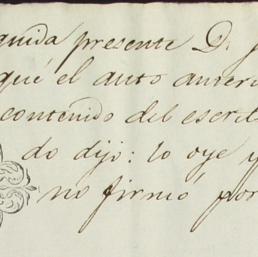 guida presente D.
qué el auto anteri
contenido del escrit
do dijo: lo oye y
no firmó por